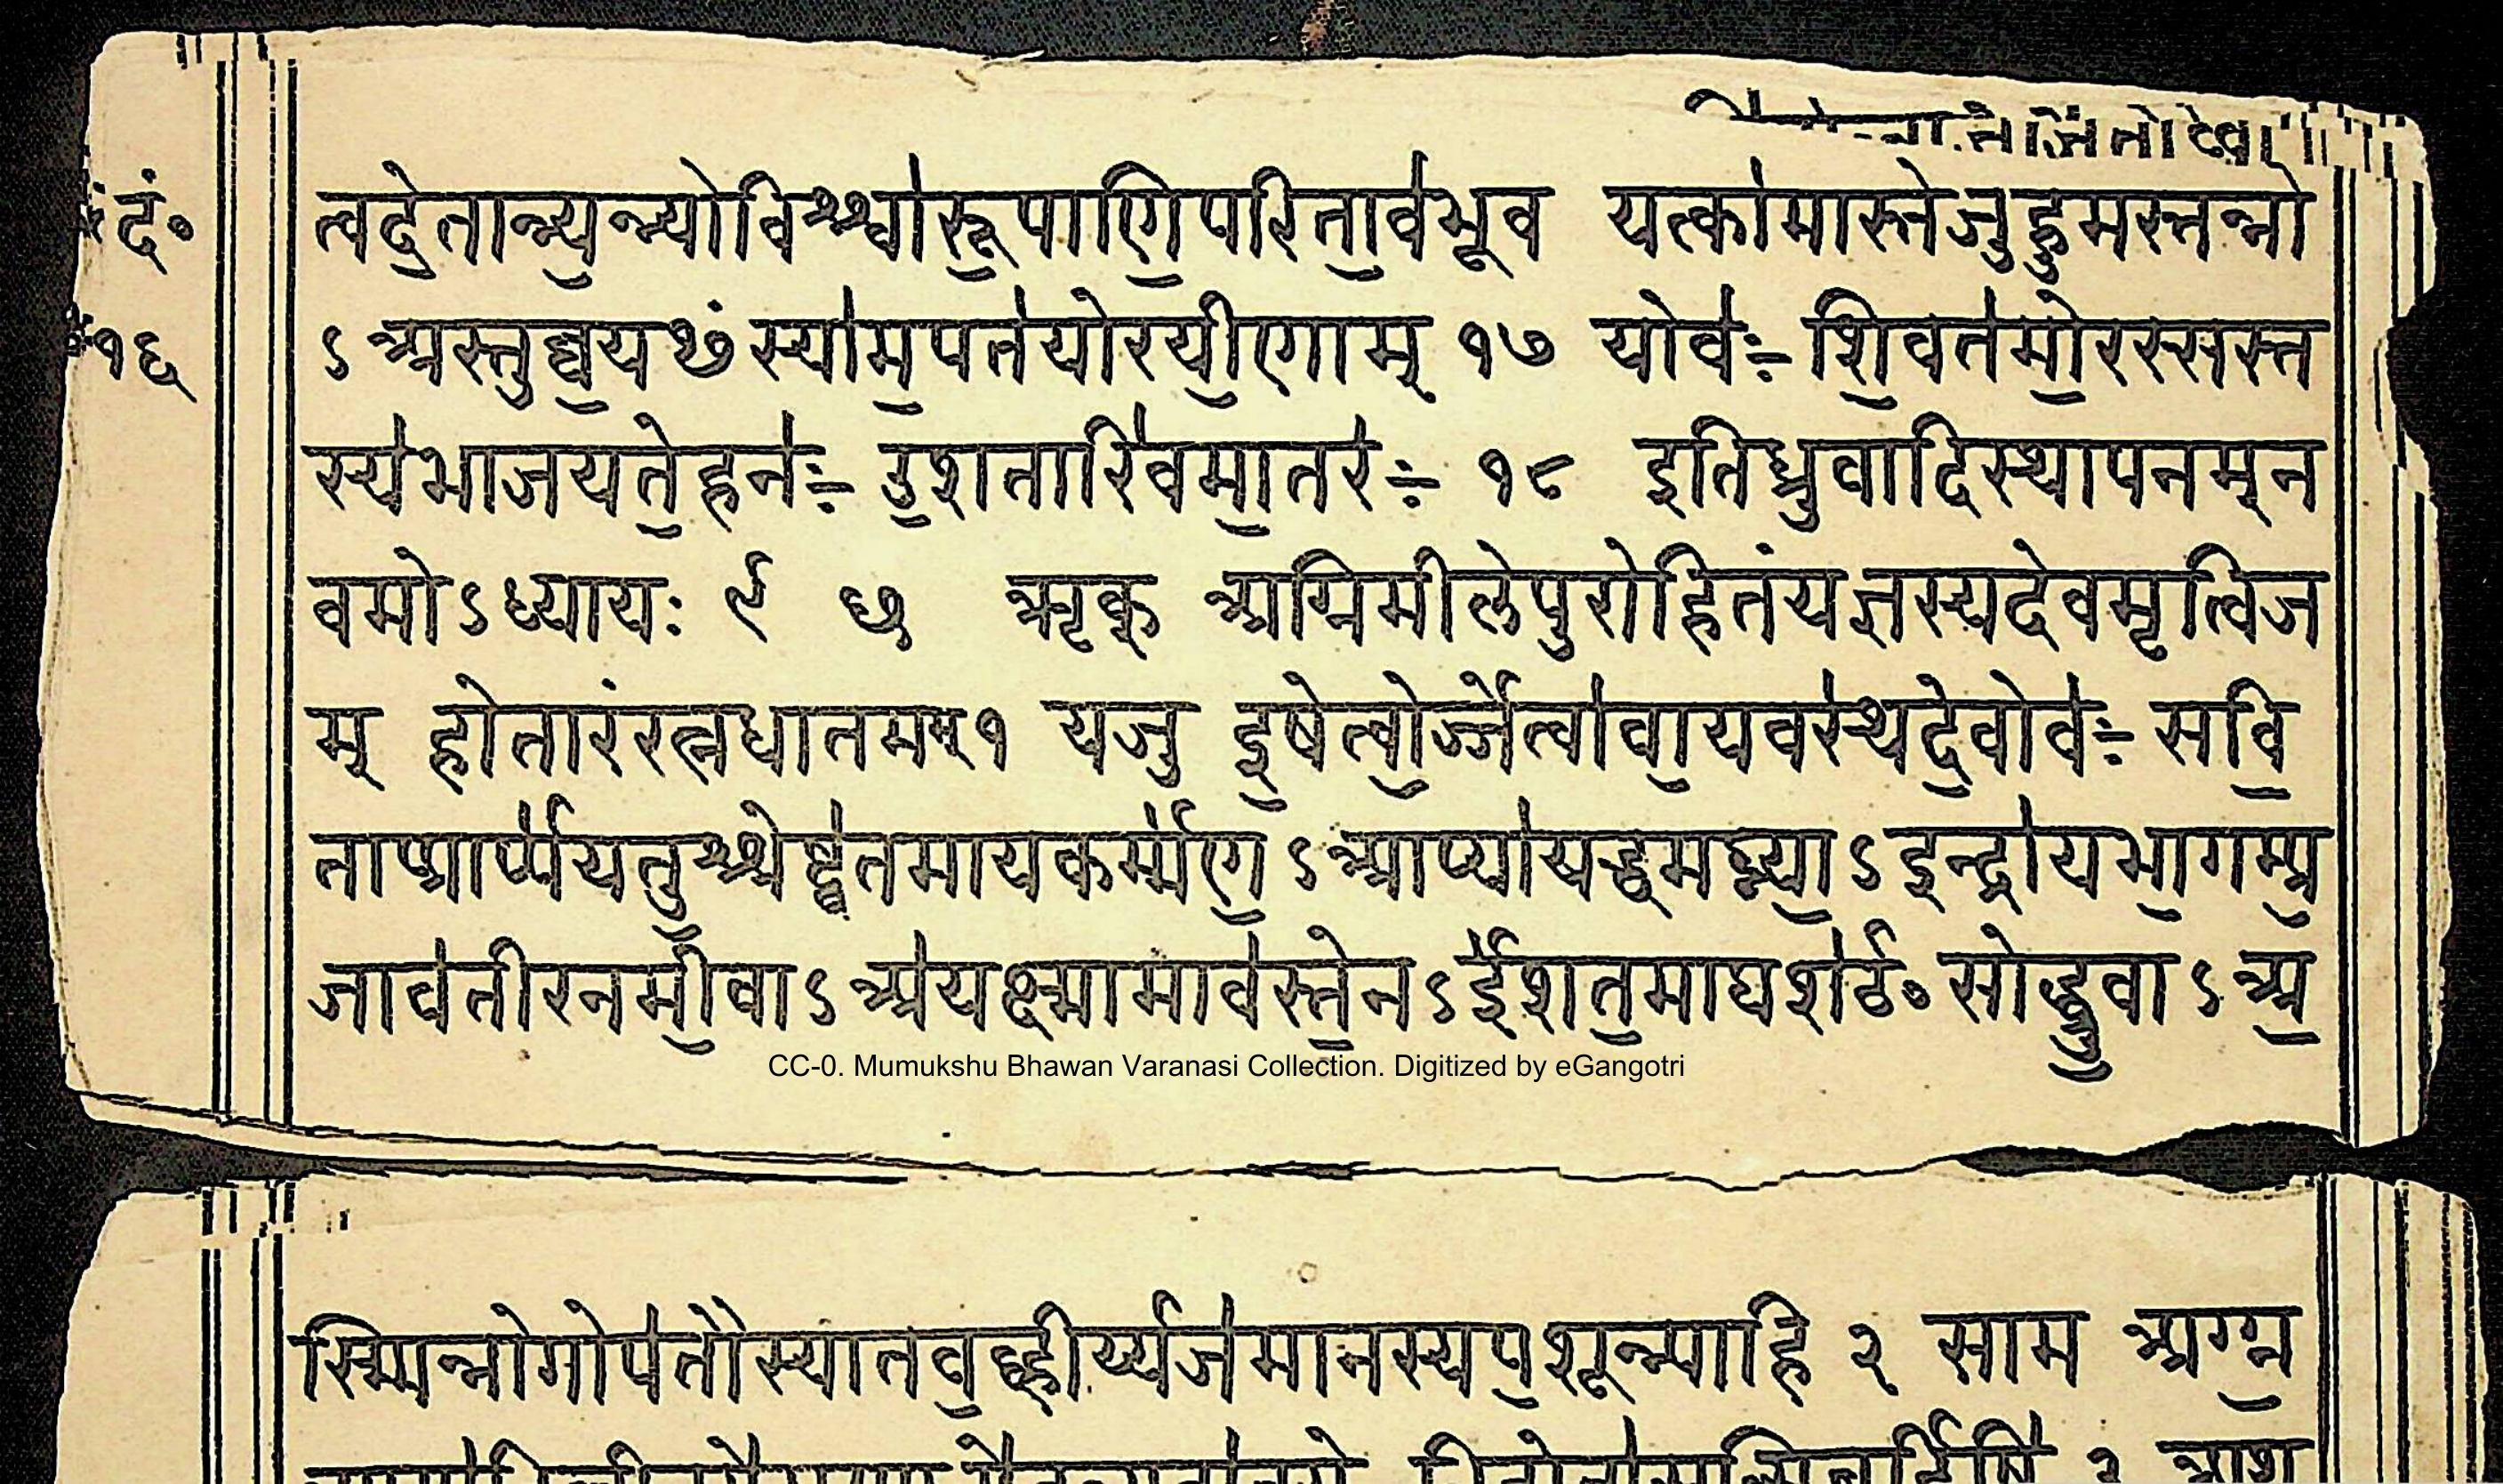 दं॰
१६
त्वदे॒तान्न्य॒न्न्योविश्श्वा॑रू॒पाणि॒परिता॒ब॑भूव यत्का॑मास्तेजुहुमस्तन्नो
ऽअस्तुव्व॒यᳪस्या॑म॒पत॑योरयी॒णाम् १७ योवः॑ शि॒वत॑मो॒रस्सस्त
स्य॑भाजयते॒हनः॑ उ॒शतीरि॑वमा॒तरः॑ १८ इतिध्रुवादिस्थापनम्न
वमोऽध्यायः ९ ७ ऋक् अग्निमीलेपुरोहितंयज्ञस्यदेवमृत्विज
म् होतारंरत्नधातमम्१ यजु इ॒षेत्वो॒र्ज्जेत्वा॑वा॒यव॑स्थदे॒वोवः॑ सवि॒
ताप्प्रार्प्प॑यतु॒श्श्रेष्ट्ठ॑तमायकर्म्म॑ण॒ ऽआप्प्या॑यद्ध्वमघ्न्या॒ऽइन्द्रा॑यभा॒गम्प्र॒
जाव॑तीरनमी॒वाऽअ॑यक्ष्मामाव॑स्ते॒नऽई॑शत॒माघश॑ᳪसोद्ध्रु॒वाऽअ॒
CC-0. Mumukshu Bhawan Varanasi Collection. Digitized by eGangotri
स्म्मिन्नोगोप॑तौस्यातव॒ह्व्हीर्य्यज॑मानस्यप॒शून्न्पाहि २ साम अग्ग्न॒